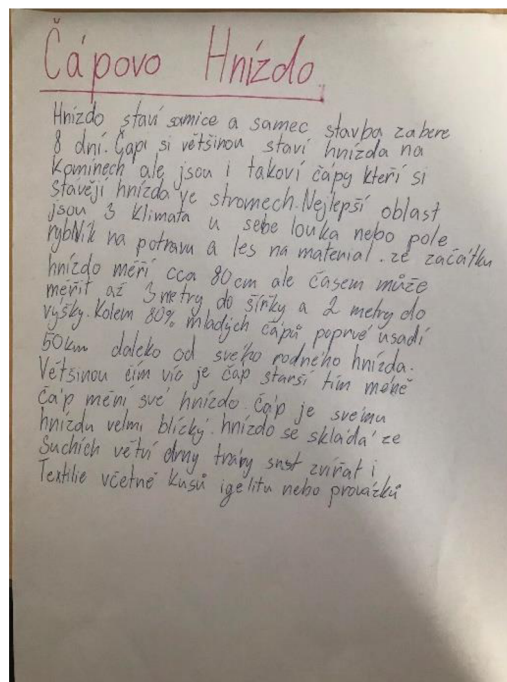 Čápovo Hnízdo
Hnízdo staví samice a samec stavba zabere
8 dní. Čapi si většinou staví hnízda na
Komínech ale jsou i takoví čápy kteří si
Stavějí hnízda ve stromech. Nejlepší oblast
jsou 3 klimata u sebe louka nebo pole
rybNík na potravu a les na material. ze začátku
hnízdo měří cca 80cm ale časem může
měřit až 3metry do šířky a 2 metry do
výšky. Kolem 80% mladých čápů poprvé usadí
50km daleko od svého rodného hnízda.
Většinou čím víc je čáp starší tím méně
Čáp mění své hnízdo. Čáp je svému
hnízdu velmi blízký. hnízdo se skládá ze
Suchích větví drny trávy srst zvířat i
Textilie včetně kusů igelitu nebo provázků